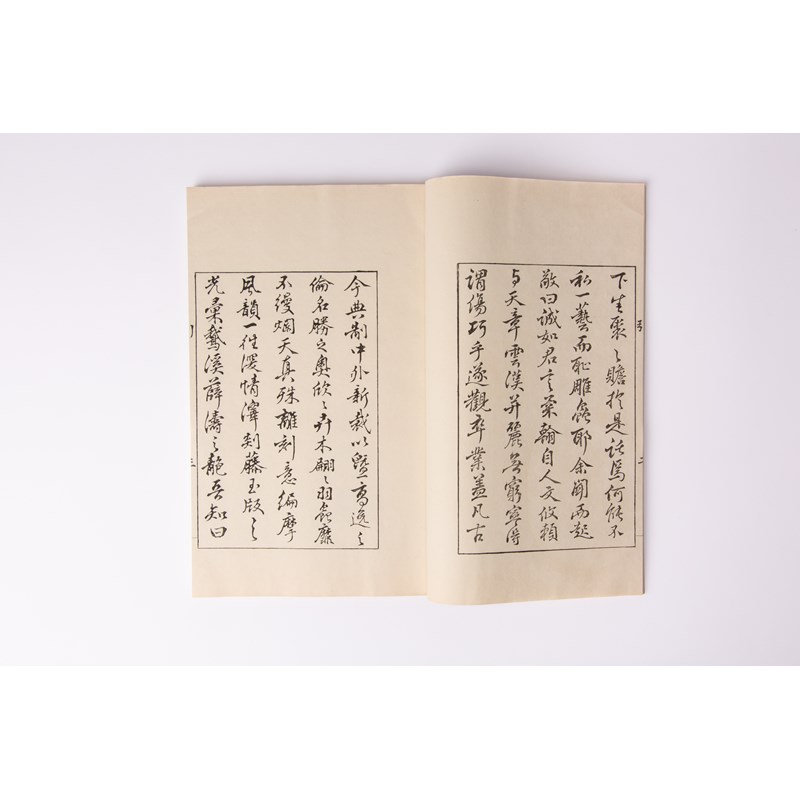 下生聚之贍於是話焉何能不
私一藝而恥雕蟲耶余聞而起
敬曰誠如君言翰自人文攸賴
与天章雲漢并麗無窮寧得
謂傷巧乎遂觀卒業蓋凡古
二
今典制中外新裁以暨高逸之
倫名勝之奧欣々卉木翩々羽蟲靡
不縵爛天真殊離刻意編摩
風韻一往深情滓剡藤玉版之
光槀鵞溪薛濤之靘吾知曰
三